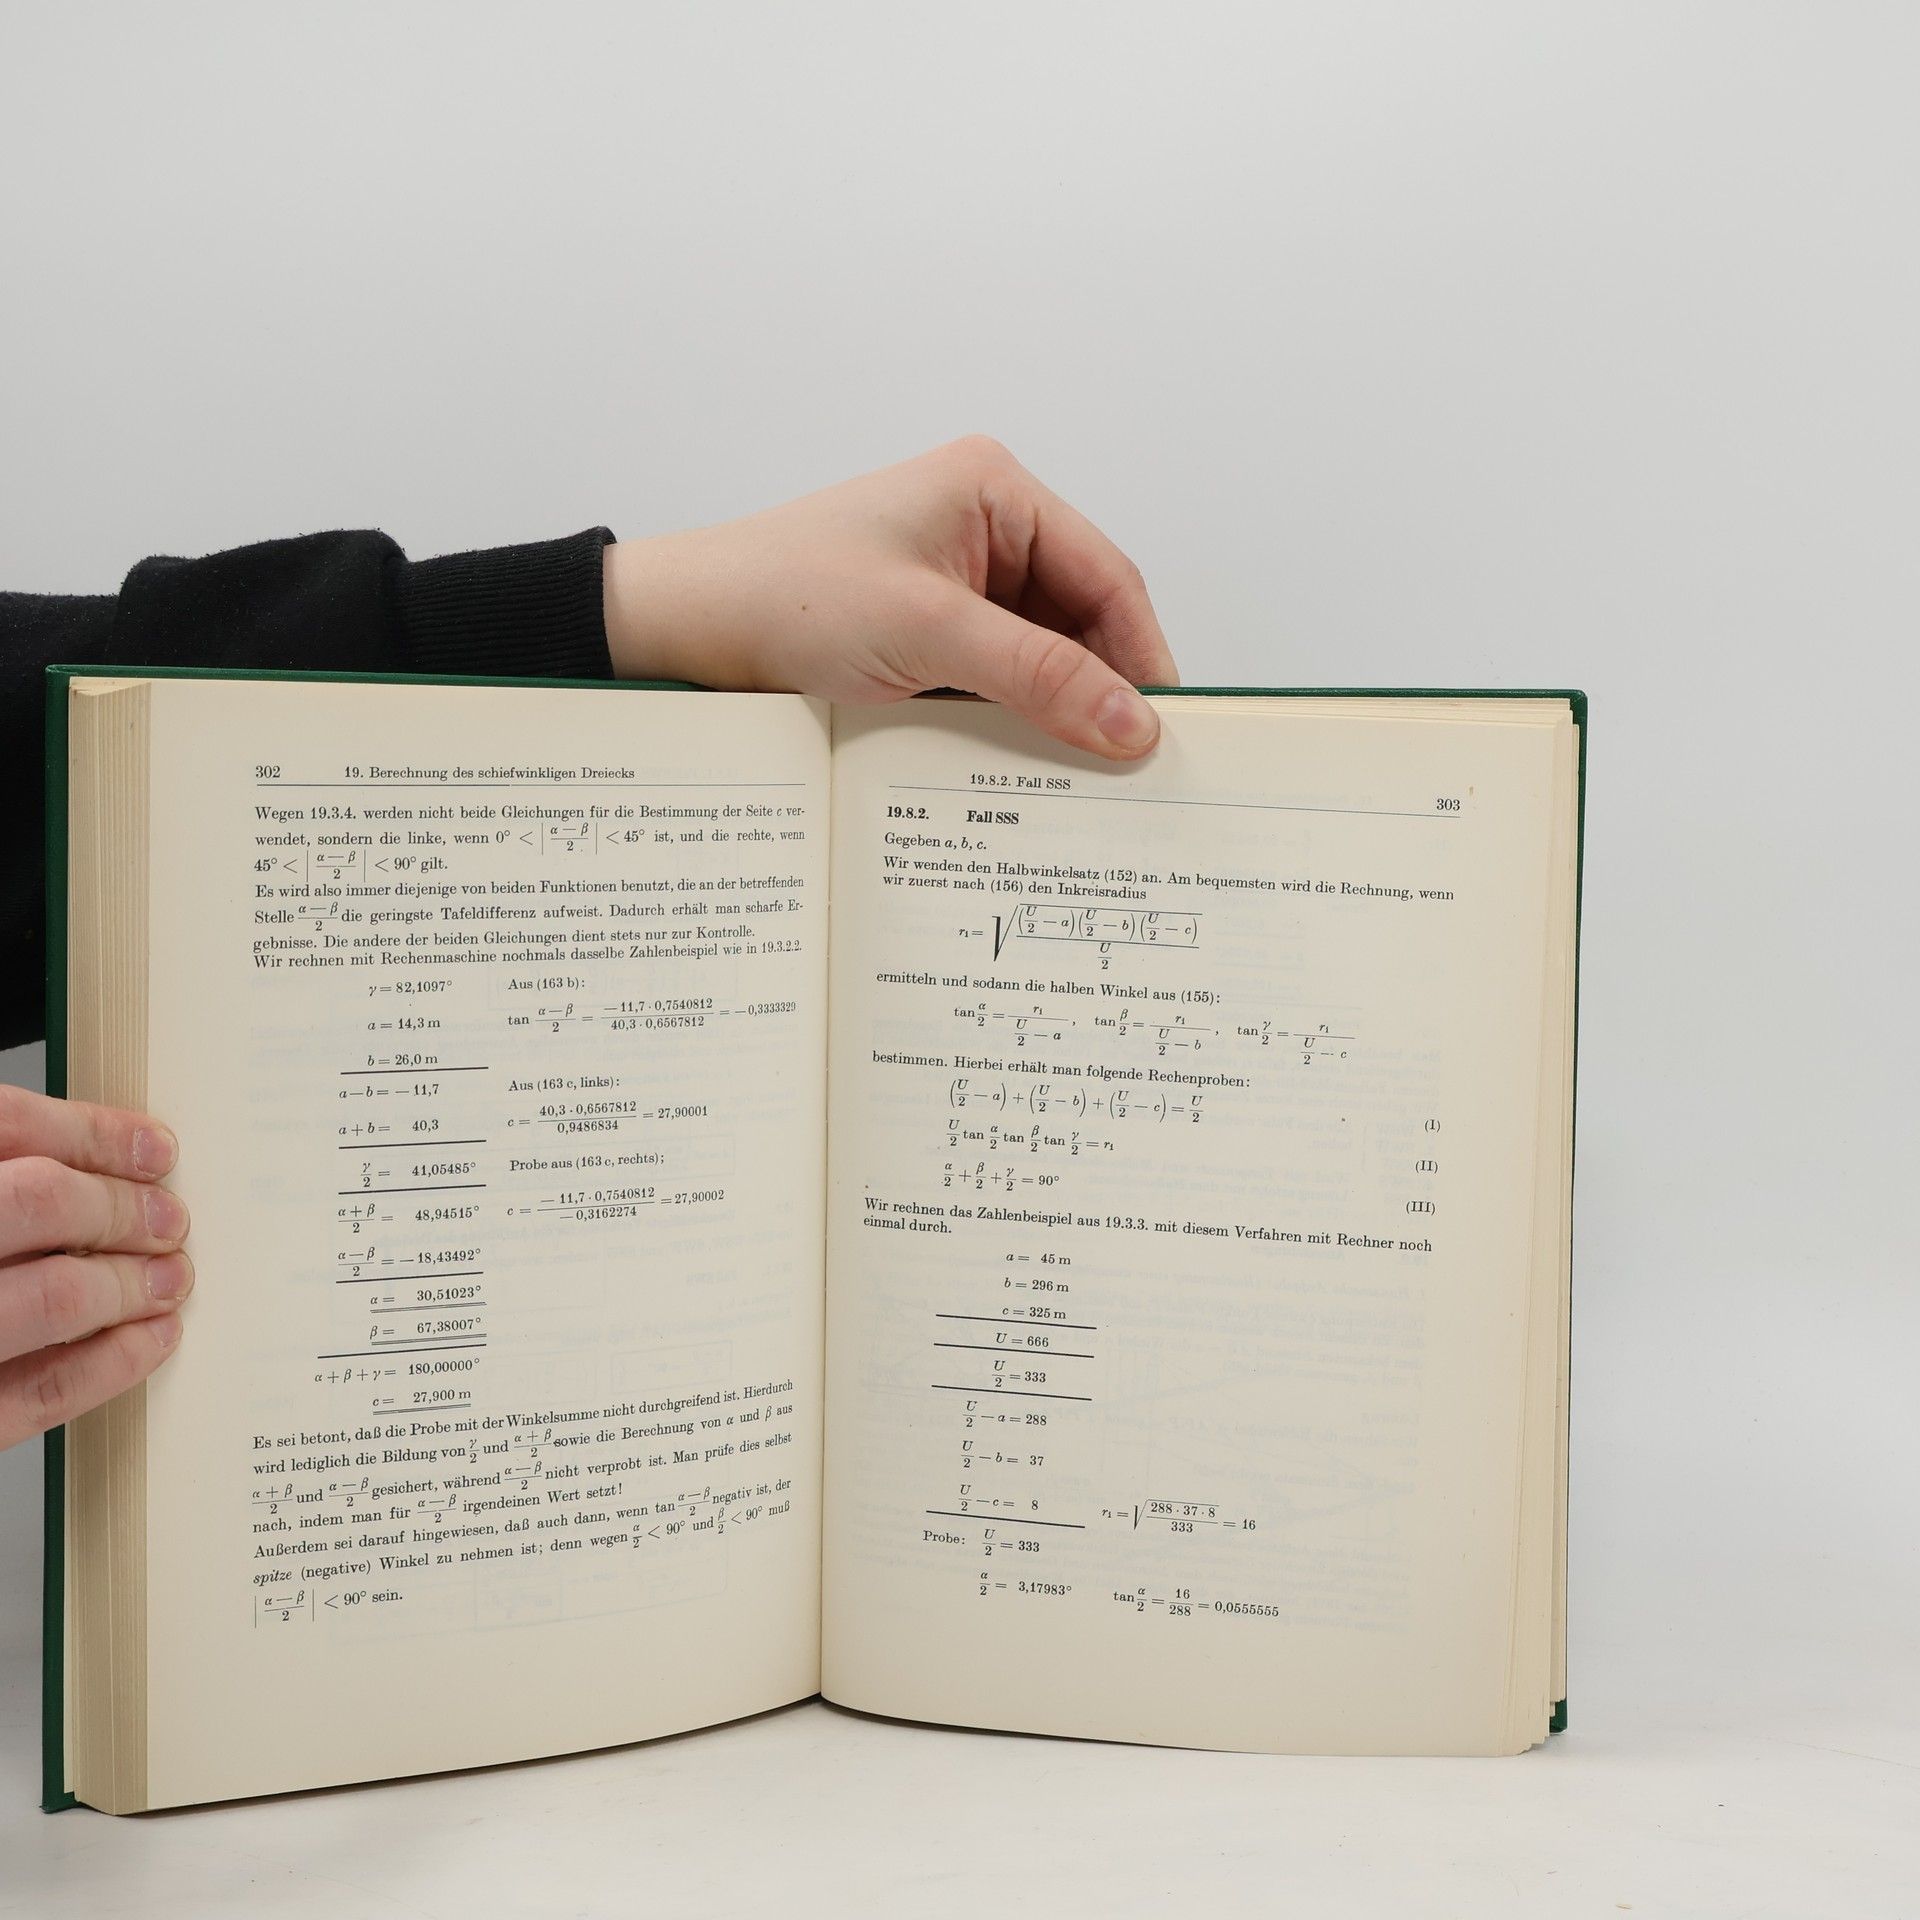 302 19. Berechnung des schiefwinkligen Dreiecks
Wegen 19.3.4. werden nicht beide Gleichungen für die Bestimmung der Seite c ver-
wendet, sondern die linke, wenn 0° < |(α — β)/2| < 45° ist, und die rechte, wenn
45° < |(α — β)/2| < 90° gilt.
Es wird also immer diejenige von beiden Funktionen benutzt, die an der betreffenden
Stelle (α — β)/2 die geringste Tafeldifferenz aufweist. Dadurch erhält man scharfe Er-
gebnisse. Die andere der beiden Gleichungen dient stets nur zur Kontrolle.
Wir rechnen mit Rechenmaschine nochmals dasselbe Zahlenbeispiel wie in 19.3.2.2.
γ = 82,1097° Aus (163 b):
a = 14,3 m tan (α — β)/2 = (—11,7 · 0,7540812)/(40,3 · 0,6567812) = —0,3333329
b = 26,0 m
a—b = — 11,7 Aus (163 c, links):
a + b = 40,3 c = (40,3 · 0,6567812)/0,9486834 = 27,90001
γ/2 = 41,05485° Probe aus (163 c, rechts);
(α + β)/2 = 48,94515° c = (— 11,7 · 0,7540812)/(— 0,3162274) = 27,90002
(α — β)/2 = — 18,43492°
α = 30,51023°
β = 67,38007°
α + β + γ = 180,00000°
c = 27,900 m
Es sei betont, daß die Probe mit der Winkelsumme nicht durchgreifend ist. Hierdurch
wird lediglich die Bildung von γ/2 und (α + β)/2 sowie die Berechnung von α und β aus
(α + β)/2 und (α — β)/2 gesichert, während (α — β)/2 nicht verprobt ist. Man prüfe dies selbst
nach, indem man für (α — β)/2 irgendeinen Wert setzt!
Außerdem sei darauf hingewiesen, daß auch dann, wenn tan (α — β)/2 negativ ist, der
spitze (negative) Winkel zu nehmen ist; denn wegen α/2 < 90° und β/2 < 90° muß
|(α — β)/2| < 90° sein.
19.8.2. Fall SSS 303
19.8.2. Fall SSS
Gegeben a, b, c.
Wir wenden den Halbwinkelsatz (152) an. Am bequemsten wird die Rechnung, wenn
wir zuerst nach (156) den Inkreisradius
r₁ = √(((U/2 — a)(U/2 — b)(U/2 — c))/(U/2))
ermitteln und sodann die halben Winkel aus (155):
tan α/2 = r₁/(U/2 — a), tan β/2 = r₁/(U/2 — b), tan γ/2 = r₁/(U/2 — c)
bestimmen. Hierbei erhält man folgende Rechenproben:
(U/2 — a) + (U/2 — b) + (U/2 — c) = U/2 (I)
U/2 tan α/2 tan β/2 tan γ/2 = r₁ (II)
α/2 + β/2 + γ/2 = 90° (III)
Wir rechnen das Zahlenbeispiel aus 19.3.3. mit diesem Verfahren mit Rechner noch
einmal durch.
a = 45 m
b = 296 m
c = 325 m
U = 666
U/2 = 333
U/2 — a = 288
U/2 — b = 37
U/2 — c = 8 r₁ = √((288 · 37 · 8)/333) = 16
Probe: U/2 = 333
α/2 = 3,17983° tan α/2 = 16/288 = 0,0555555